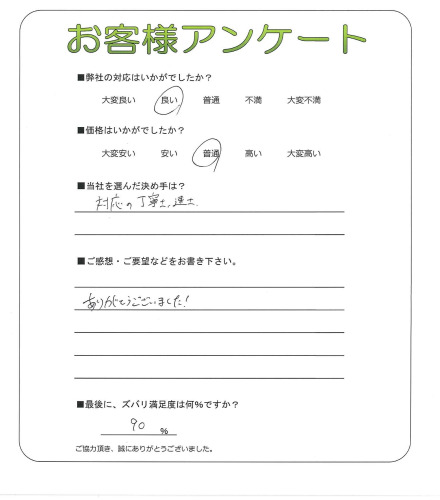 お客様アンケート
■弊社の対応はいかがでしたか？
大変良い 良い 普通 不満 大変不満
■価格はいかがでしたか？
大変安い 安い 普通 高い 大変高い
■当社を選んだ決め手は？
対応の丁寧さ、速さ
■ご感想・ご要望などをお書き下さい。
ありがとうございました！
■最後に、ズバリ満足度は何％ですか？
90 %
ご協力頂き、誠にありがとうございました。